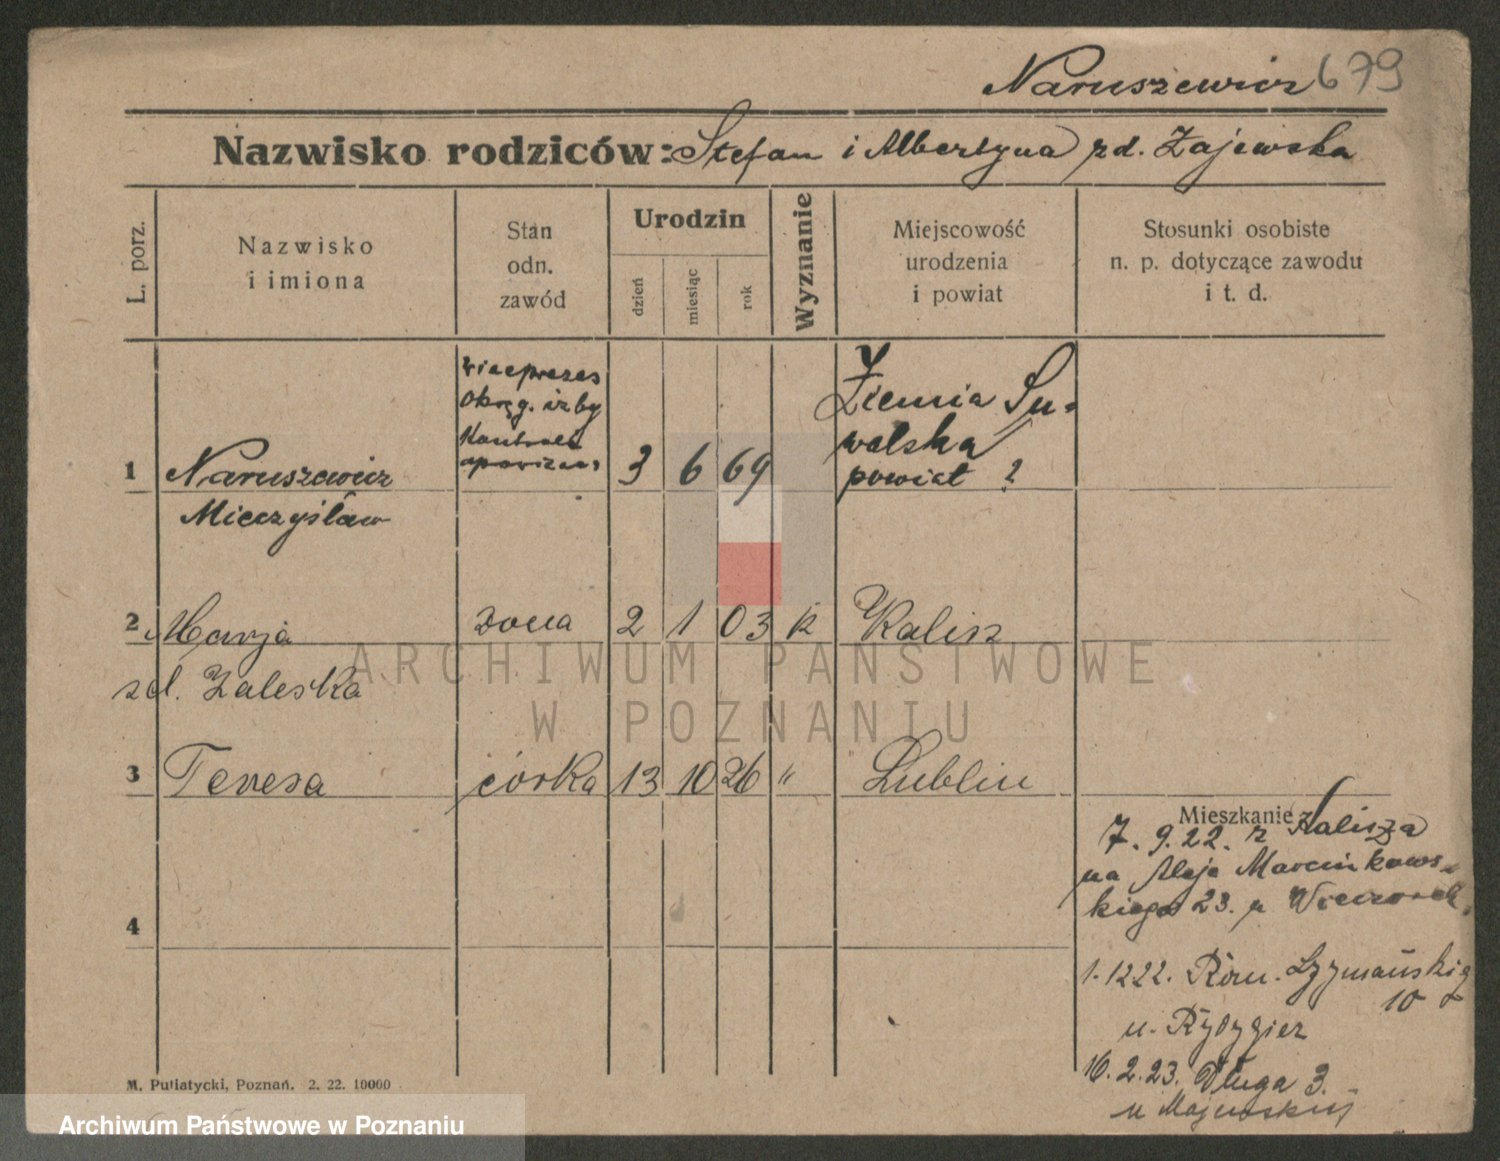 Naruszewicz 679
Nazwisko rodziców: Stefan i Albertyna zd. Zajewska
L. porz.
Nazwisko
i imiona
Stan
odn.
zawód
Urodzin
dzień
miesiąc
rok
Wyznanie
Miejscowość
urodzenia
i powiat
Stosunki osobiste
n. p. dotyczące zawodu
i t. d.
1 Naruszewicz
Mieczysław
wiceprezes
Okręg. izby
Kontroli
3 6 69
Ziemia Su-
walska
powiat ?
2 Marja żona 2 1 03 k Kalisz
zd. Zaleska
3 Teresa córka 13 10 26 " Lublin
Mieszkanie
7. 9. 22. z Kalisza
na Aleje Marcinkows-
kiego 23. u Wieczorek.
1. 12 22. Rom. Szymańskiego
10
u. Rydygier
16. 2. 23. Długa 3.
u Majewskiej
4
M. Putiatycki, Poznań. 2. 22. 10000
ARCHIWUM PAŃSTWOWE
W POZNANIU
Archiwum Państwowe w Poznaniu